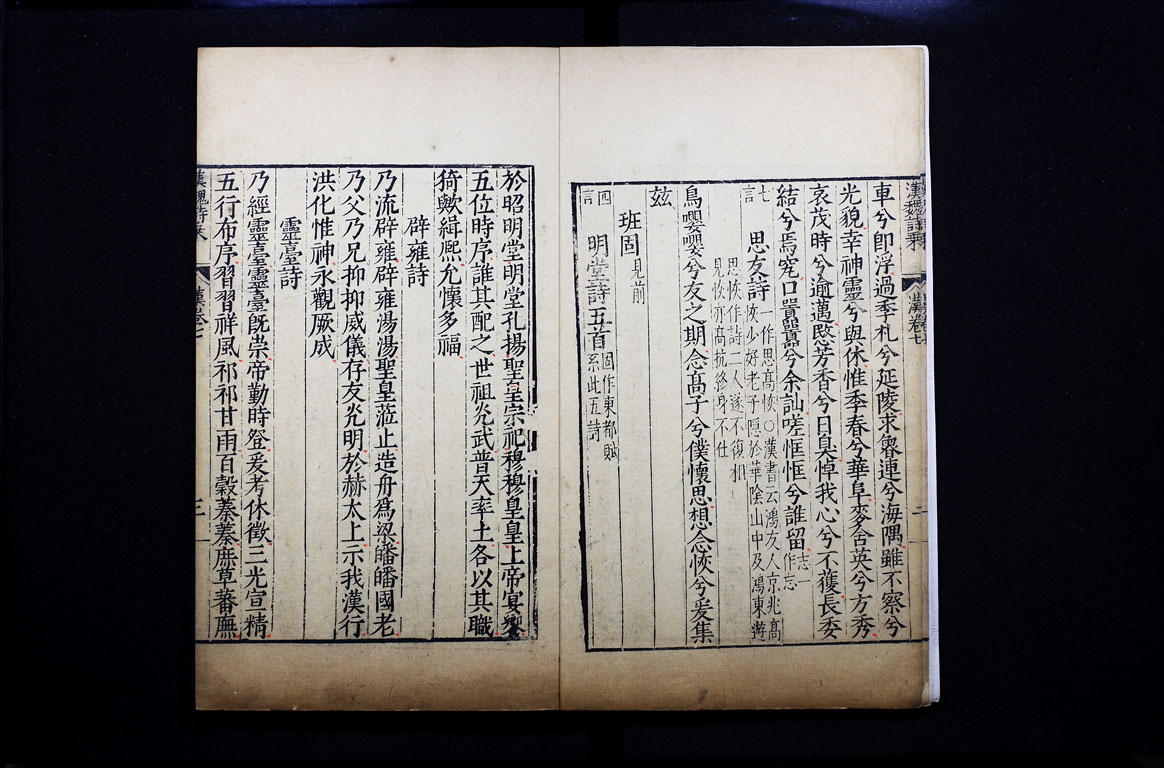 漢魏詩乘 漢卷七 二
車兮即浮過季札兮延陵求魯連兮海隅雖不察兮
光貌幸神靈兮與休惟季春兮華阜麥含英兮方秀
哀茂時兮逾邁愍芳香兮日臭悼我心兮不獲長委
結兮焉究口囂囂兮余訕嗟恇恇兮誰留志一作忘
七言
思友詩一作思高恢○漢書云鴻友人京兆高
恢少好老子隱於華陰山中及鴻東遊
思恢作詩二人遂不復相
見恢亦高抗終身不仕
鳥嚶嚶兮友之期念高子兮僕懷思想念恢兮爰集
玆
班固見前
四言
明堂詩五首固作東都賦
系此五詩
於昭明堂明堂孔揚聖皇宗祀穆穆皇皇上帝宴饗
五位時序誰其配之世祖光武普天率土各以其職
猗歟緝熙允懷多福
辟雍詩
乃流辟雍辟雍湯湯聖皇蒞止造舟爲梁皤皤國老
乃父乃兄抑抑威儀孝友光明於赫太上示我漢行
洪化惟神永觀厥成
靈臺詩
乃經靈臺靈臺既崇帝勤時登爰考休徵三光宣精
五行布序習習祥風祁祁甘雨百穀蓁蓁庶草蕃廡
漢魏詩乘 漢卷七 三